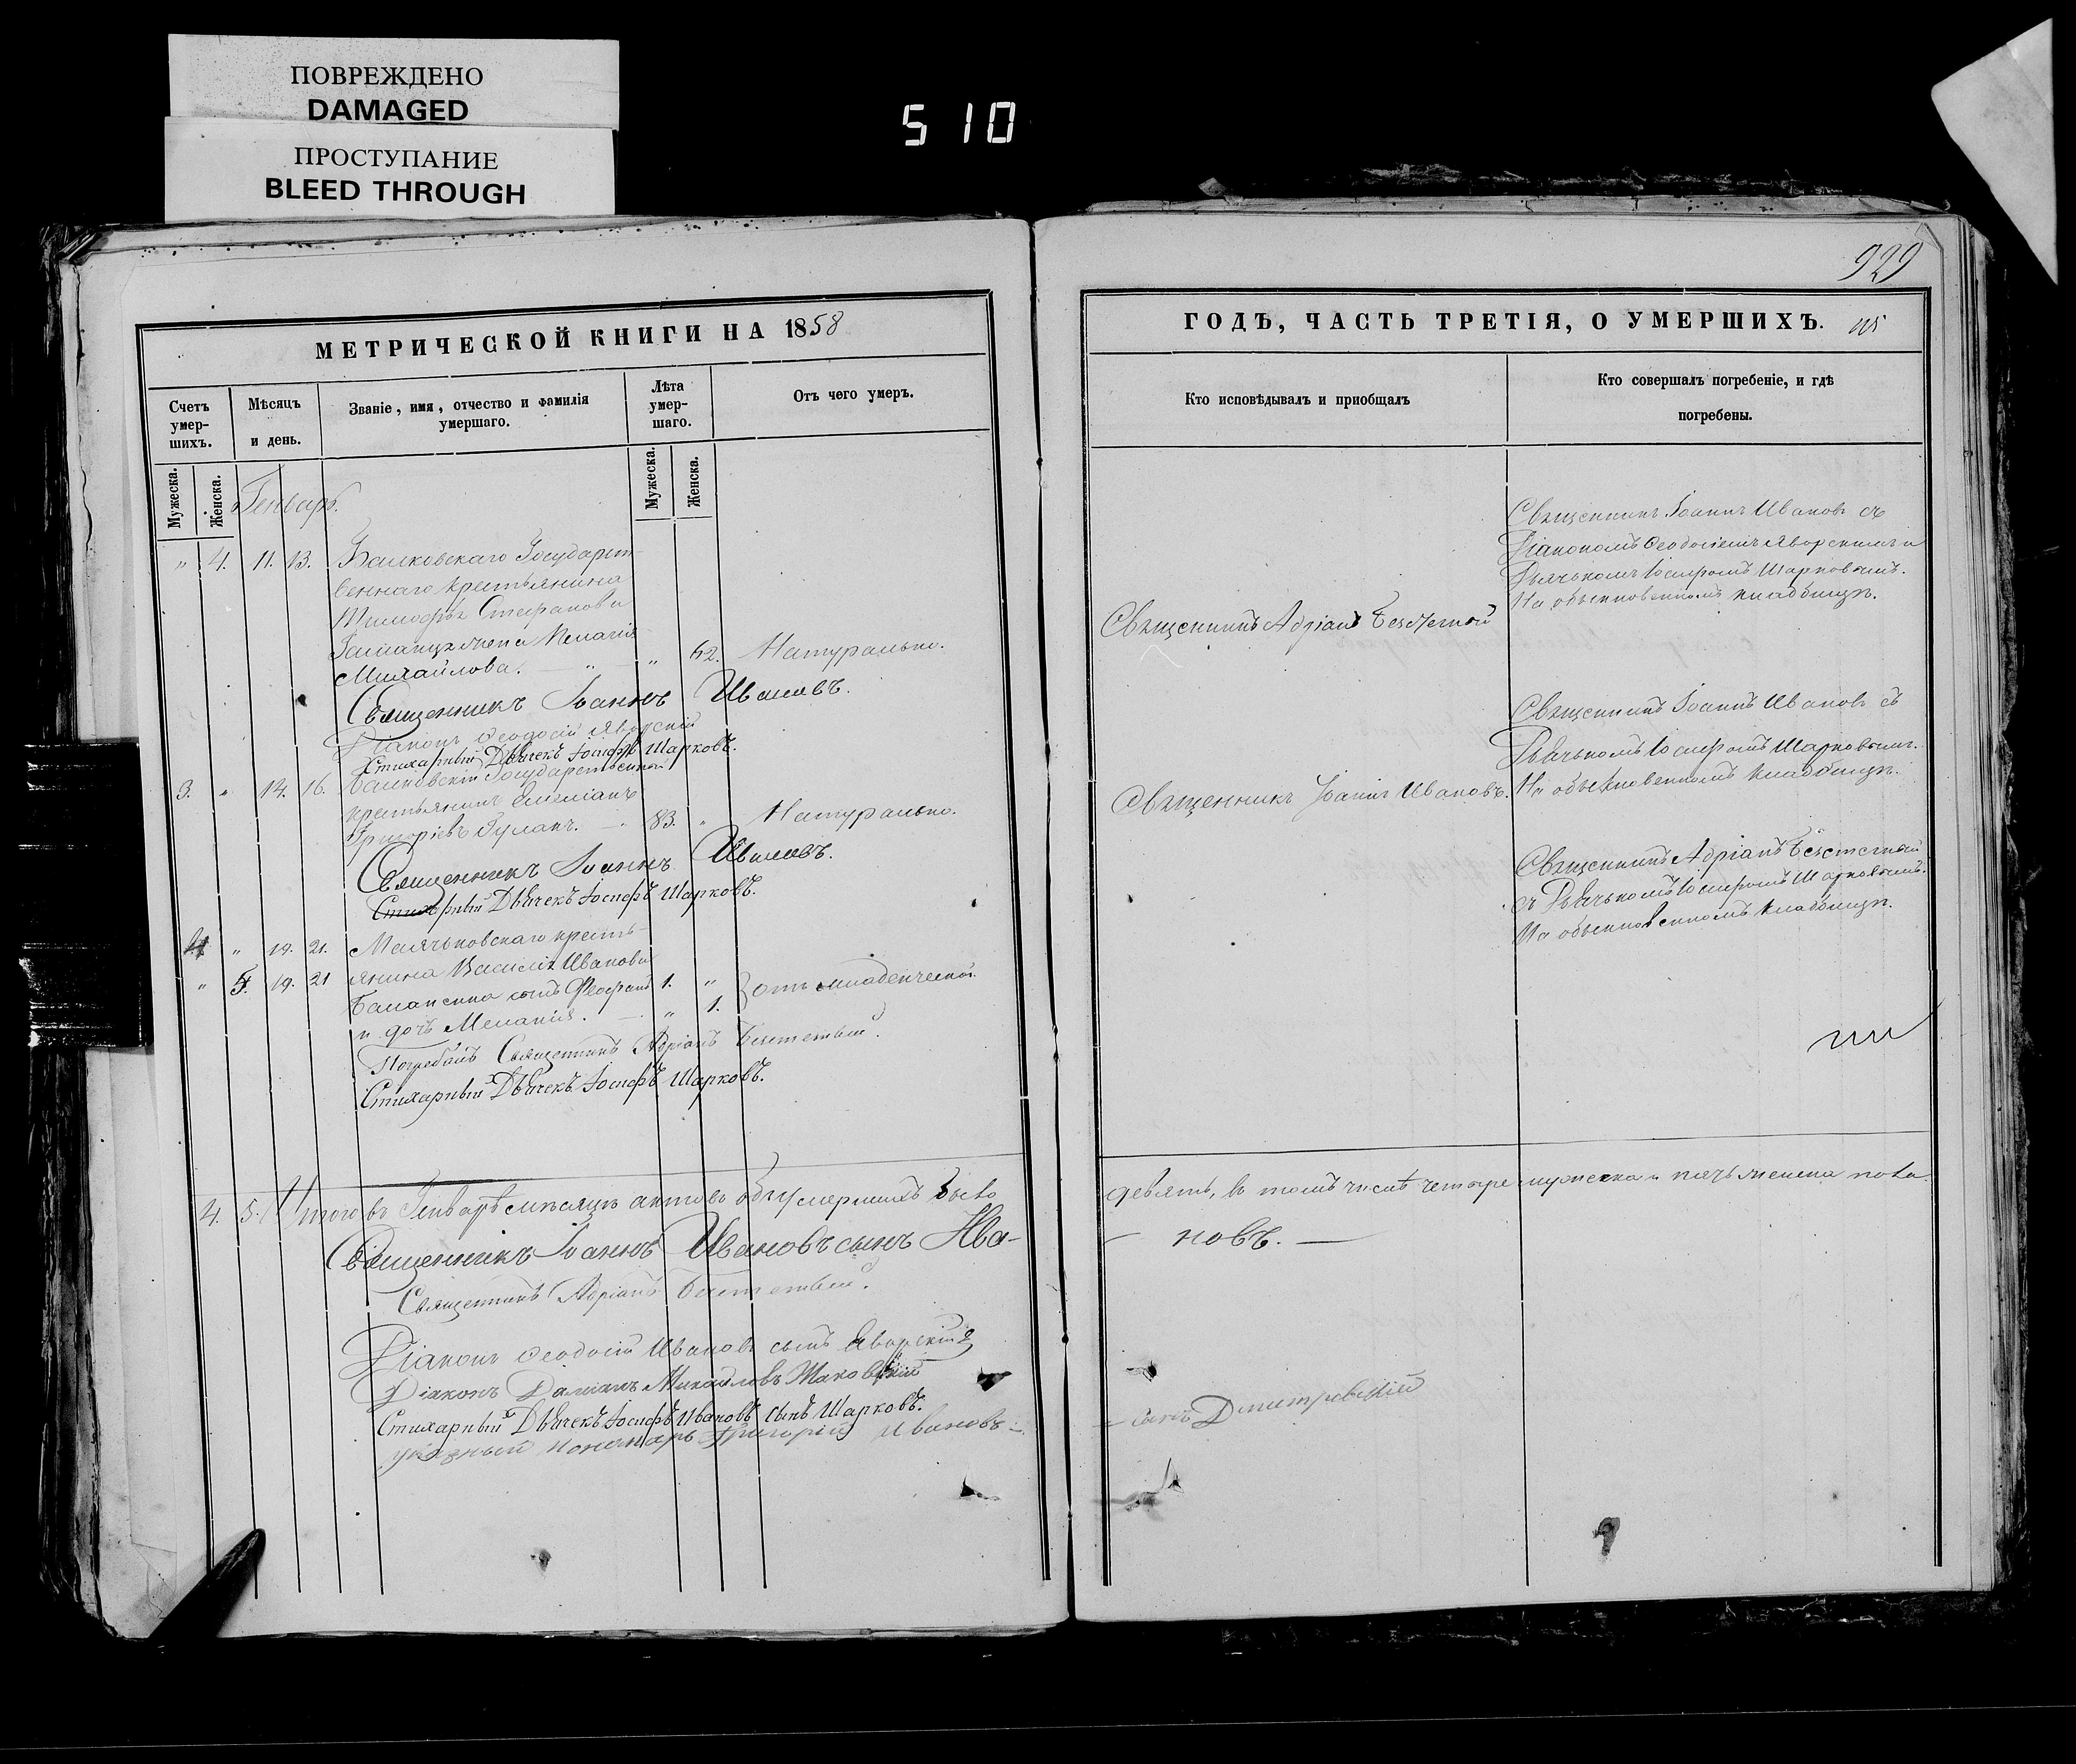 ПОВРЕЖДЕНО
DAMAGED
ПРОСТУПАНИЕ
BLEED THROUGH
510
МЕТРИЧЕСКОЙ КНИГИ НА 1858
Счетъ умер-шихъ.
Мѣсяцъ и день.
Званіе, имя, отчество и фамилія умершаго.
Лѣта умер-шаго.
Отъ чего умеръ.
Мужеска.
Женска.
Мужеска.
Женска.
Генварь.
" 4. 11. 13. Государст-
веннаго крестьянина
Стефанова
жена Пелагія
Михайлова. — " — " 62. Натурально.
Священникъ Іоаннъ Ивановъ.
Діаконъ Ѳеодосій Яворскій
Стихарный Дьячекъ Іосифъ Шарковъ.
3. " 14. 16. Государственной
крестьянинъ Емеліанъ
Григоріевъ Гулакъ. — 83. " Натурально.
Священникъ Іоаннъ Ивановъ.
Стихарный Дьячекъ Іосифъ Шарковъ.
4 " 19. 21. кресть-
" 5. 19. 21 янина Василія Иванова
сынъ 1. " отъ младенческой.
и дочь Меланія. — " 1.
Погребалъ Священникъ Адріанъ
Стихарный Дьячекъ Іосифъ Шарковъ.
4. 5. Итого въ Генварѣ мѣсяцѣ актовъ объ умершихъ было
Священникъ Іоаннъ Ивановъ сынъ Ива-
Священникъ Адріанъ
Діаконъ Ѳеодосій Ивановъ сынъ Яворскій
Діаконъ Даміанъ Михайловъ Маковскій
Стихарный Дьячекъ Іосифъ Ивановъ сынъ Шарковъ.
указный пономарь Григорій Ивановъ —
929
ГОДЪ, ЧАСТЬ ТРЕТІЯ, О УМЕРШИХЪ. 115
Кто исповѣдывалъ и приобщалъ
Кто совершалъ погребеніе, и гдѣ погребены.
Священникъ Іоаннъ Ивановъ съ
Діакономъ Ѳеодосіемъ Яворскимъ и
Дьячькомъ Іосифомъ Шарковымъ.
На обыкновенномъ кладбищѣ.
Священникъ Адріанъ
Священникъ Іоаннъ Ивановъ съ
Дьячькомъ Іосифомъ Шарковымъ.
Священникъ Іоаннъ Ивановъ. На обыкновенномъ кладбищѣ.
Священникъ Адріанъ
съ Дьячькомъ Іосифомъ Шарковымъ.
На обыкновенномъ кладбищѣ.
девять, въ томъ числѣ четыре мужеска и пять женска пола.
— новъ. —
— сынъ Дмитревскій